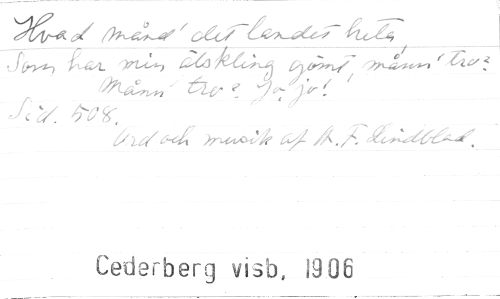 Hvad månd' det landet heta,
Som har min älskling gömt, månn' tro?
Månn' tro? Jo, jo!
Sid. 508.
Ord och musik af A. F. Lindblad.
Cederberg visb. 1906